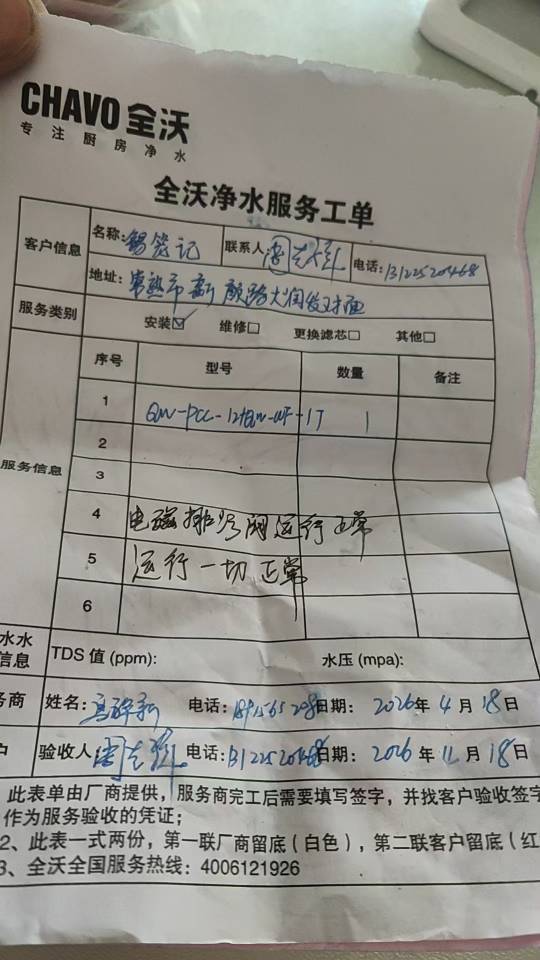 CHAVO 全沃
专注厨房净水
全沃净水服务工单
客户信息 名称: 锡签记 联系人: 周志 电话: 13122520468
地址: 常熟市新颜路大润发对面
服务类别 安装☑ 维修□ 更换滤芯□ 其他□
服务信息 序号 型号 数量 备注
1 1
2
3
4 电磁排污阀运行正常
5 运行一切正常
6
水水 信息 TDS 值 (ppm): 水压 (mpa):
务商 姓名: 电话: 日期: 2026年4月18日
户 验收人: 周志 电话: 13122520468 日期: 2026年11月18日
此表单由厂商提供，服务商完工后需要填写签字，并找客户验收签字
作为服务验收的凭证；
2、此表一式两份，第一联厂商留底（白色），第二联客户留底（红
3、全沃全国服务热线：4006121926